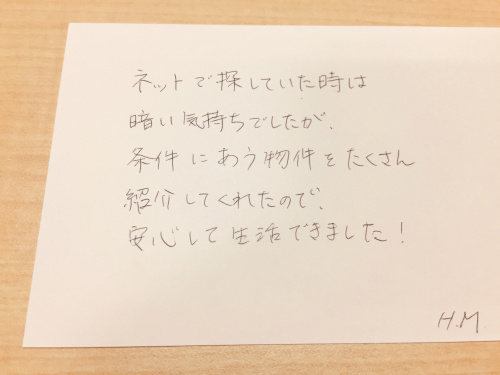 ネットで探していた時は
暗い気持ちでしたが、
条件にあう物件をたくさん
紹介してくれたので、
安心して生活できました！
H.M